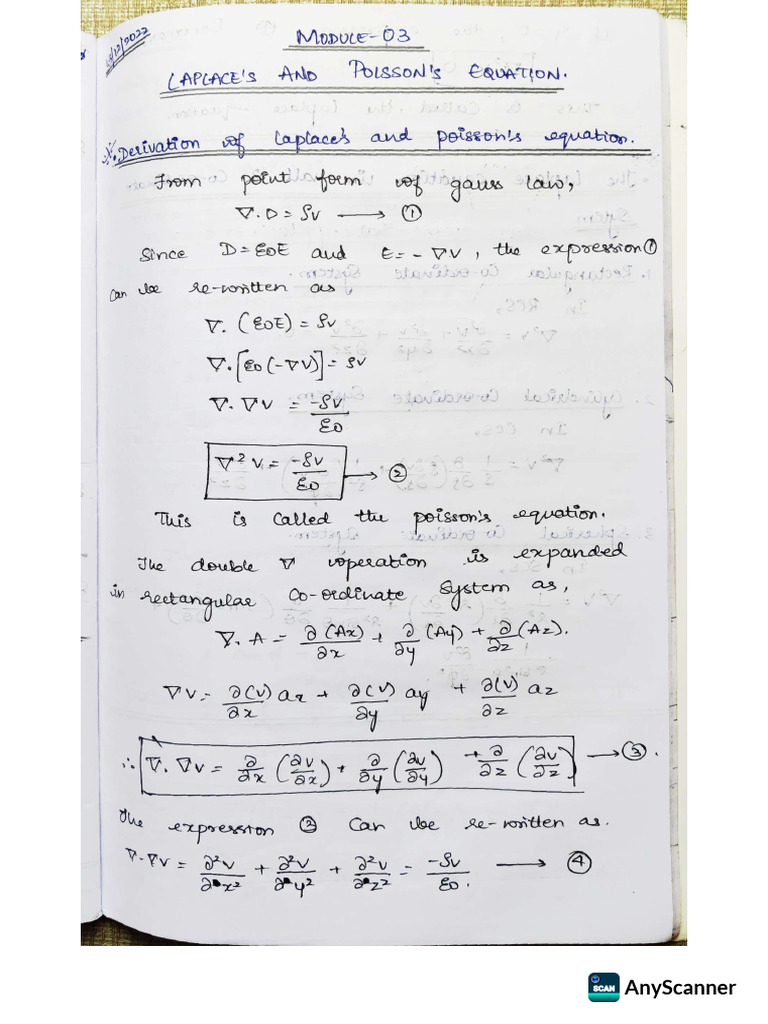 /12/2022
MODULE-03
LAPLACE'S AND POISSON'S EQUATION.
Derivation of Laplace's and poisson's equation.
From point form of gauss law,
∇.D = ρv → ①
Since D=ε0E and E=-∇V, the expression ①
can be re-written as
∇.(ε0E) = ρv
∇.[ε0(-∇V)] = ρv
∇.∇V = -ρv/ε0
∇²V = -ρv/ε0 → ②
This is called the poisson's equation.
The double ∇ operation is expanded
in rectangular co-ordinate system as,
∇.A = ∂(Ax)/∂x + ∂/∂y (Ay) + ∂/∂z (Az).
∇V = ∂(V)/∂x ax + ∂(V)/∂y ay + ∂(V)/∂z az
∴ ∇.∇V = ∂/∂x (∂V/∂x) + ∂/∂y (∂V/∂y) + ∂/∂z (∂V/∂z) → ③.
The expression ② can be re-written as.
∇.∇V = ∂²V/∂x² + ∂²V/∂y² + ∂²V/∂z² = -ρv/ε0. → ④
SCAN AnyScanner